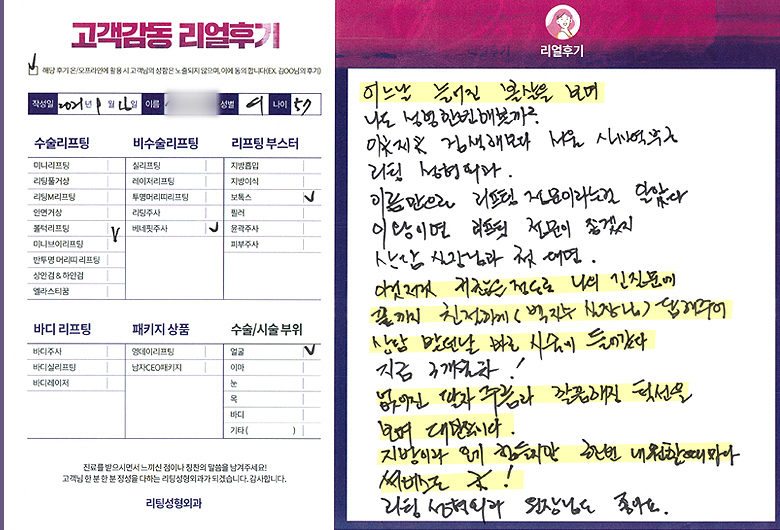 고객감동 리얼후기
해당 후기 온/오프라인에 활용 시 고객님의 성함은 노출되지 않으며, 이에 동의합니다(EX. 김OO님의 후기)
작성일 2021년 1월 일 이름 성별 여 나이 57
수술리프팅
미니리프팅
리팅풀거상
리팅M리프팅
안면거상
볼턱리프팅
미니브이리프팅
반투명 머리띠 리프팅
상안검 & 하안검
엘라스티꿈
비수술리프팅
실리프팅
레이저리프팅
투명머리띠리프팅
리팅주사
비네핏주사
리프팅 부스터
지방흡입
지방이식
보톡스
필러
윤곽주사
피부주사
바디 리프팅
바디주사
바디실리프팅
바디레이저
패키지 상품
영데이리프팅
남자CEO패키지
수술/시술 부위
얼굴
이마
눈
목
바디
기타 ( )
진료를 받으시면서 느끼신 점이나 칭찬의 말씀을 남겨주세요!
고객님 한 분 한 분 정성을 다하는 리팅성형외과가 되겠습니다. 감사합니다.
리팅성형외과
리얼후기
어느날 늘어진 볼살을 보며
나도 성형한번해볼까?
검색해보다 서울
리팅 성형외과.
이름만으로 리프팅 전문이라는걸 알았다
이왕이면 리프팅 전문이 좋겠지
상담 실장님과 첫 대면.
이것저것 귀찮을정도로 나의 긴질문에
끝까지 친절하게 ( 백지수 실장님 ) 답해주어
상담 받던날 바로 시술에 들어갔다
지금 3개월차 !
없어진 팔자 주름과 깔끔해진 턱선을
보며 대만족이다.
지방이라 오기 힘들지만 한번 내원할때마다
서비스도 굿 !
리팅성형외과 원장님도 좋아요.